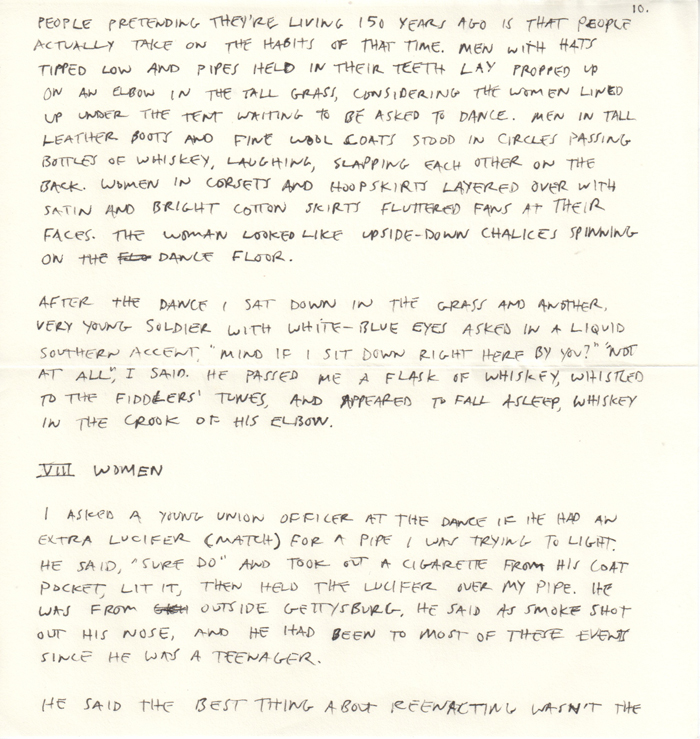 10.
PEOPLE PRETENDING THEY'RE LIVING 150 YEARS AGO IS THAT PEOPLE
ACTUALLY TAKE ON THE HABITS OF THAT TIME. MEN WITH HATS
TIPPED LOW AND PIPES HELD IN THEIR TEETH LAY PROPPED UP
ON AN ELBOW IN THE TALL GRASS, CONSIDERING THE WOMEN LINED
UP UNDER THE TENT WAITING TO BE ASKED TO DANCE. MEN IN TALL
LEATHER BOOTS AND FINE WOOL COATS STOOD IN CIRCLES PASSING
BOTTLES OF WHISKEY, LAUGHING, SLAPPING EACH OTHER ON THE
BACK. WOMEN IN CORSETS AND HOOPSKIRTS LAYERED OVER WITH
SATIN AND BRIGHT COTTON SKIRTS FLUTTERED FANS AT THEIR
FACES. THE WOMAN LOOKED LIKE UPSIDE-DOWN CHALICES SPINNING
ON THE FLO DANCE FLOOR.
AFTER THE DANCE I SAT DOWN IN THE GRASS AND ANOTHER,
VERY YOUNG SOLDIER WITH WHITE-BLUE EYES ASKED IN A LIQUID
SOUTHERN ACCENT, "MIND IF I SIT DOWN RIGHT HERE BY YOU?" "NOT
AT ALL", I SAID. HE PASSED ME A FLASK OF WHISKEY, WHISTLED
TO THE FIDDLERS' TUNES, AND APPEARED TO FALL ASLEEP, WHISKEY
IN THE CROOK OF HIS ELBOW.
VIII WOMEN
I ASKED A YOUNG UNION OFFICER AT THE DANCE IF HE HAD AN
EXTRA LUCIFER (MATCH) FOR A PIPE I WAS TRYING TO LIGHT.
HE SAID, "SURE DO" AND TOOK OUT A CIGARETTE FROM HIS COAT
POCKET, LIT IT, THEN HELD THE LUCIFER OVER MY PIPE. HE
WAS FROM OUTSIDE GETTYSBURG, HE SAID AS SMOKE SHOT
OUT HIS NOSE, AND HE HAD BEEN TO MOST OF THESE EVENTS
SINCE HE WAS A TEENAGER.
HE SAID THE BEST THING ABOUT REENACTING WASN'T THE